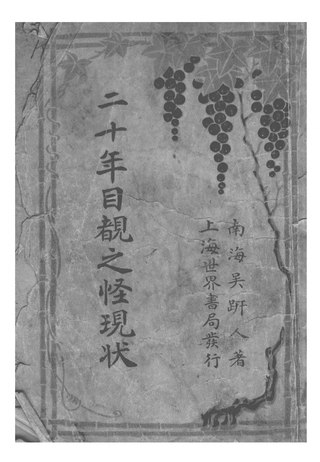 二十年目覩之怪現狀
南海吳趼人著
上海世界書局發行